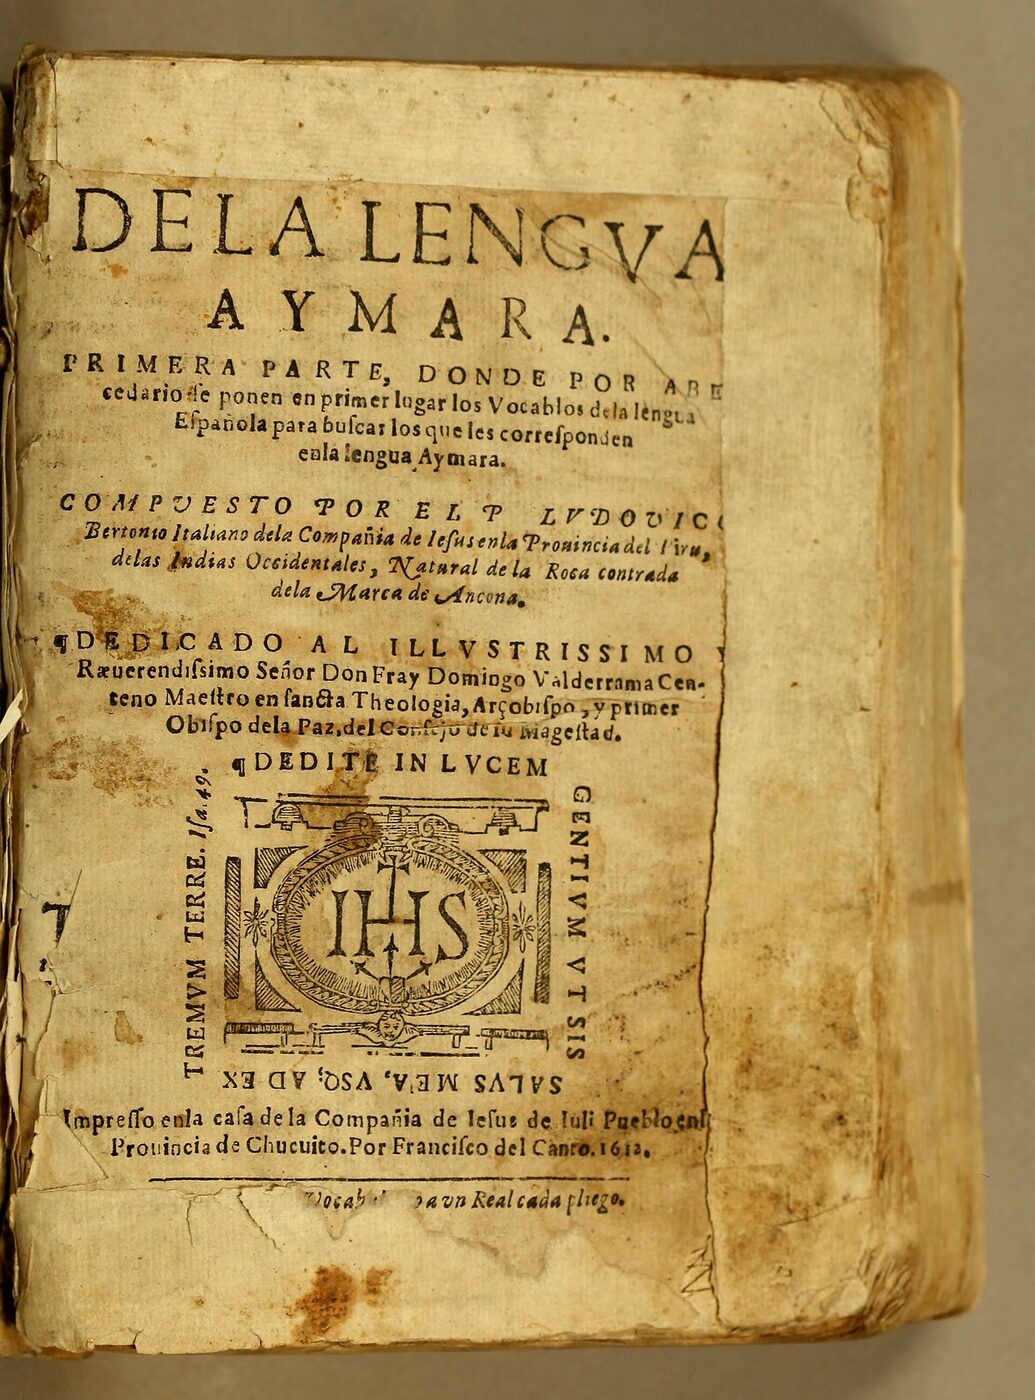 DELA LENGVA
AYMARA.
PRIMERA PARTE, DONDE POR ABE
cedario ſe ponen en primer lugar los Vocablos dela lengua
Eſpañola para buſcar los que les correſponden
enla lengua Aymara.
COMPVESTO POR EL P LVDOVICO
Bertonio Italiano dela Compañia de Ieſus enla Prouincia del Piru,
delas Indias Occidentales, Natural de la Roca contrada
dela Marca de Ancona.
¶DEDICADO AL ILLVSTRISSIMO
Ræuerendiſsimo Señor Don Fray Domingo Valderrama Cen-
teno Maeſtro en ſancta Theologia, Arçobiſpo, y primer
Obiſpo dela Paz, del Conſejo de ſu Mageſtad.
¶DEDI TE IN LVCEM
GENTIVM VT SIS
SALVS MEA, VSQ; AD EX
TREMVM TERRE. Iſa. 49.
IHS
Impreſſo enla caſa de la Compañia de Ieſus de Iuli Pueblo enl
Prouincia de Chucuito. Por Franciſco del Canto. 1612.
vn Real cada pliego.